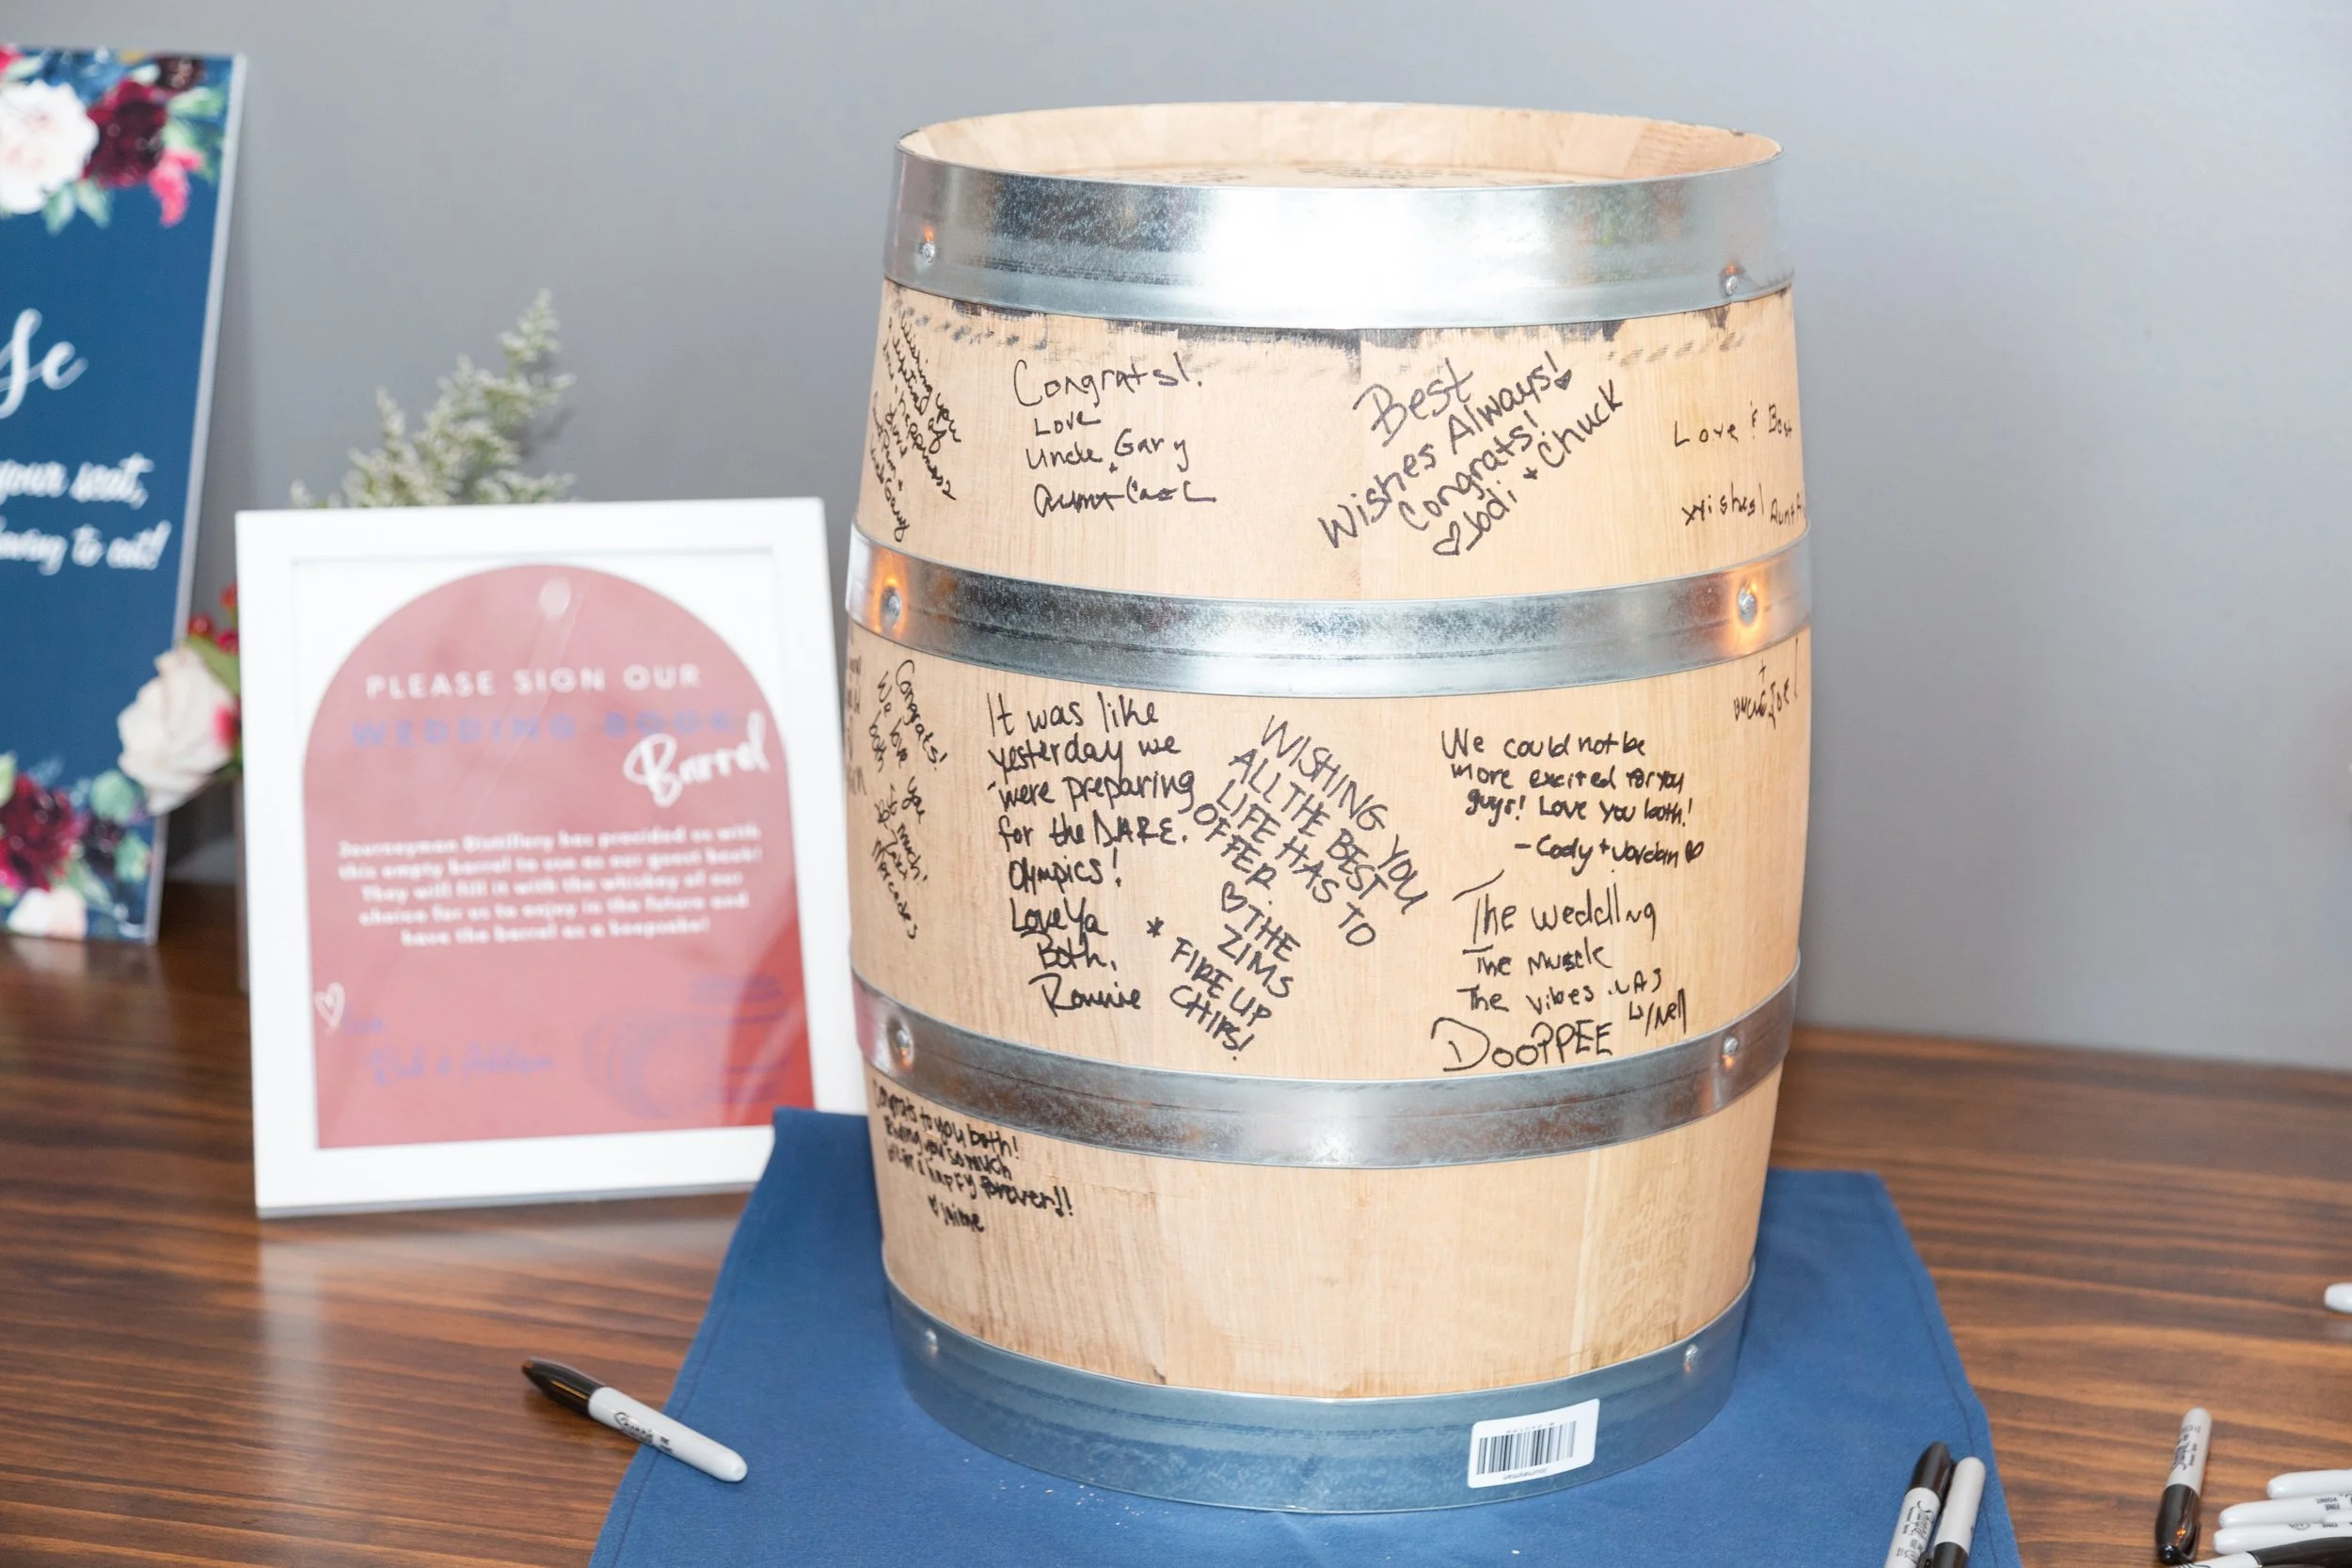 se
your seat,
having to eat!
PLEASE SIGN OUR
WEDDING BOOK
Barrel
Journeyman Distillery has provided us with
this empty barrel to use as our guest book!
They will fill it with the whiskey of our
choice for us to enjoy in the future and
have the barrel as a keepsake!
Wishing you
happiness
Congrats!
Love
Uncle Gary
+
Aunt
Best
Wishes Always!
Congrats!
Jodi + Chuck
Love & Best
Wishes! Aunt
Congrats!
We love you
both so
much!
It was like
yesterday we
were preparing
for the D.A.R.E.
Olympics!
Love Ya
Both,
Ronnie
WISHING YOU
ALL THE BEST
LIFE HAS TO
OFFER.
THE
ZIMS
* FIRE UP
CHIPS!
We could not be
more excited for you
guys! Love you both!
- Cody + Jordan
The wedding
The Muscle
The vibes
DOOPPEE
Congrats to you both!
you so much
happy forever!!
Jaime
Journeyman